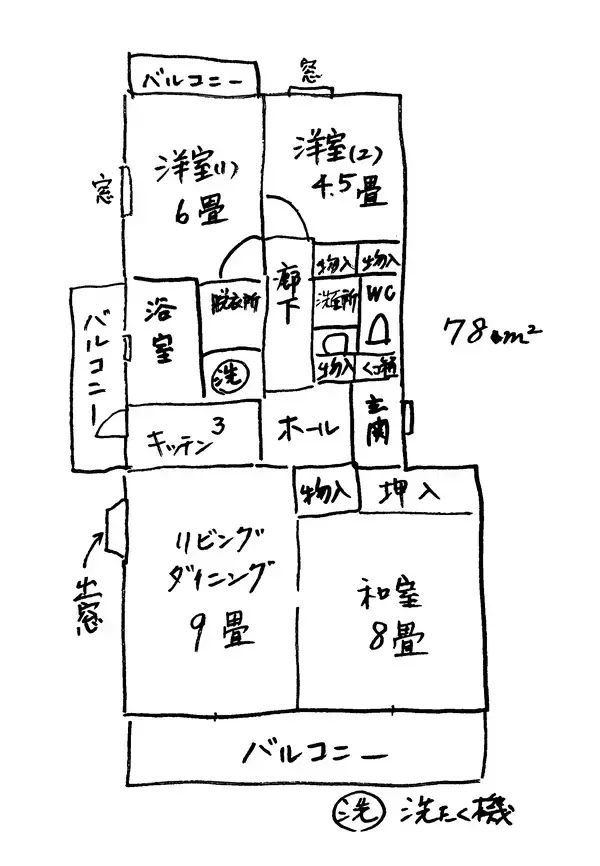 バルコニー
窓
洋室(1)
6畳
洋室(2)
4.5畳
窓
物入
物入
廊下
脱衣所
洗面所
WC
浴室
バルコニー
洗
物入
くつ箱
玄関
78㎡
キッチン3
ホール
物入
押入
リビング
ダイニング
9畳
出窓
和室
8畳
バルコニー
洗 洗たく機